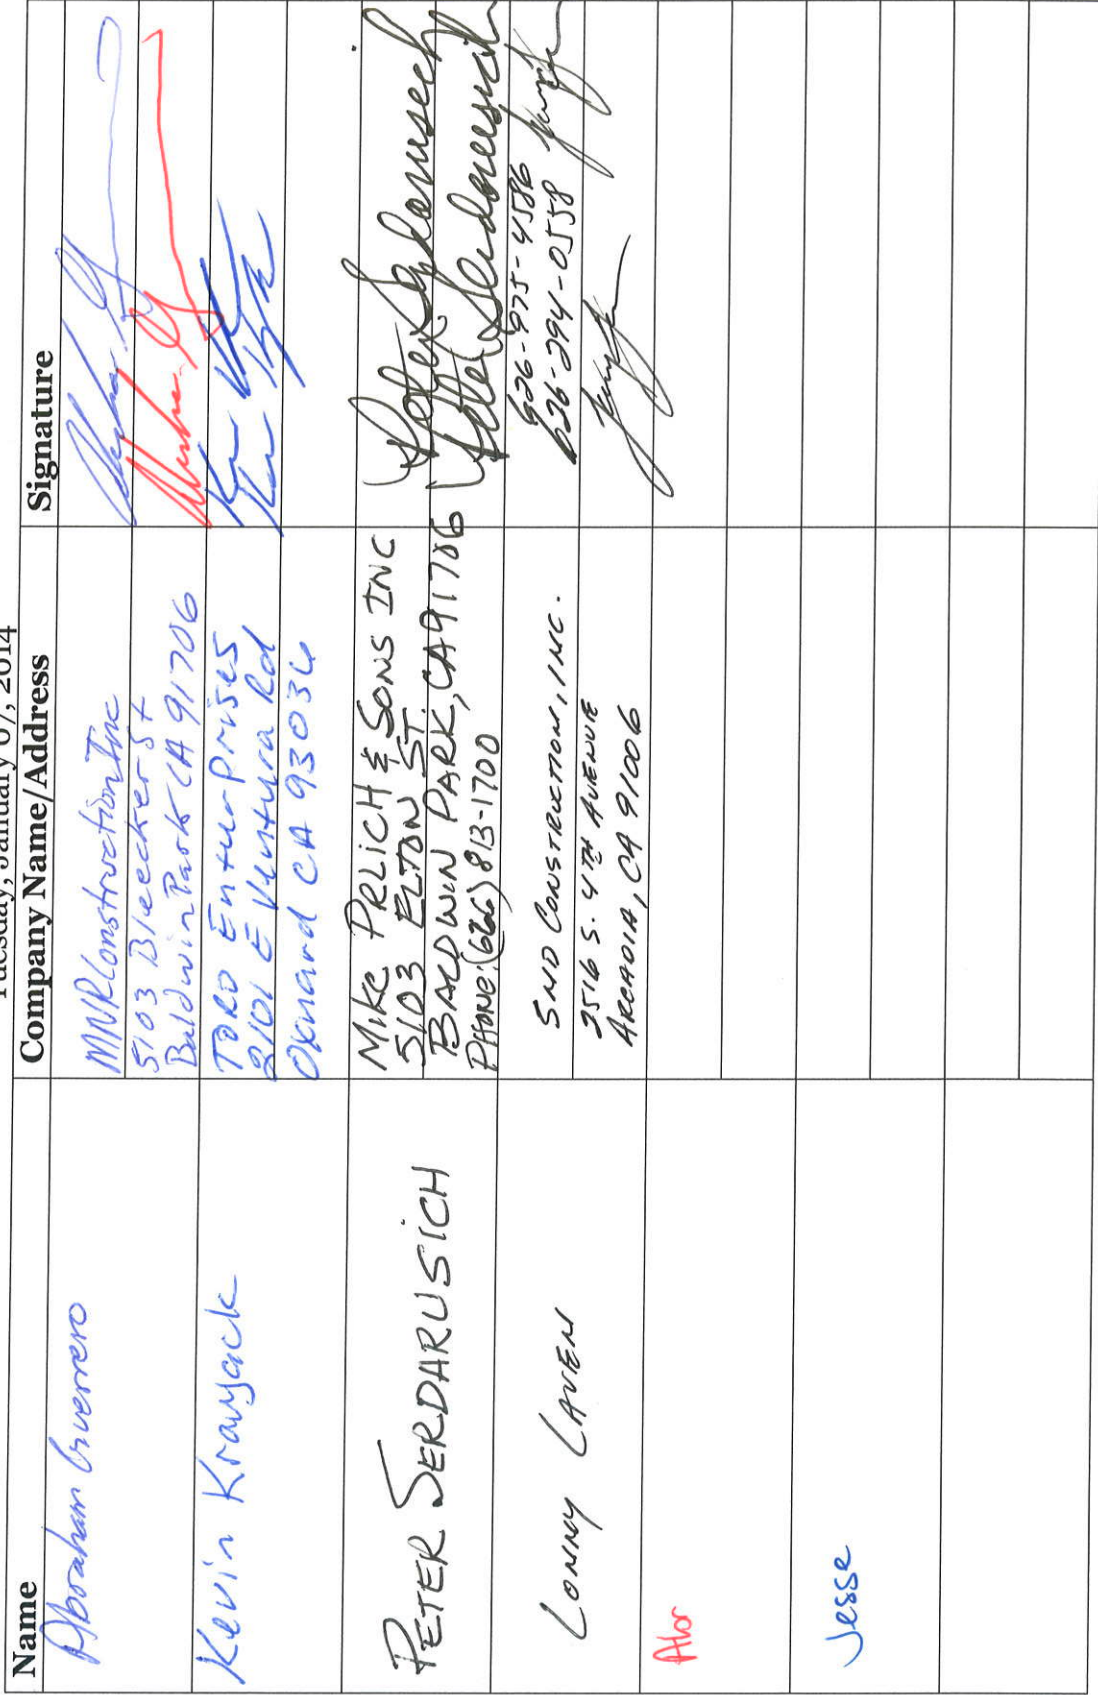 Tuesday, January 07, 2014
Name
Company Name/Address
Signature
Abraham Guerrero
MNR Construction Inc
5103 Bleecker St
Baldwin Park CA 91706
Kevin Krayack
TORO Enturprises
2101 E Ventura Rd
Oxnard CA 93036
PETER SERDARUSICH
MIKE PRLICH & SONS INC
5103 ELTON ST.
BALDWIN PARK, CA 91706
PHONE: (626) 813-1700
Peter Serdarusich
Peter Serdarusich
LONNY LAVEN
SND CONSTRUCTION, INC.
2516 S. 4TH AVENUE
ARCADIA, CA 91006
626-975-4586
626-294-0558
Alor
Jesse